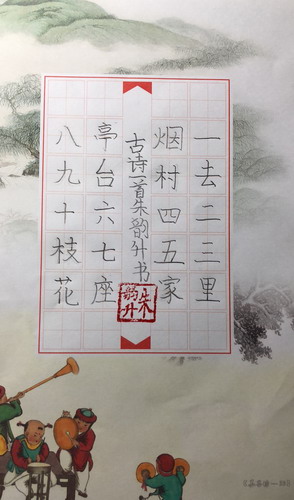 一去二三里
烟村四五家
古诗一首朱韵升书
亭台六七座
八九十枝花
朱韵升